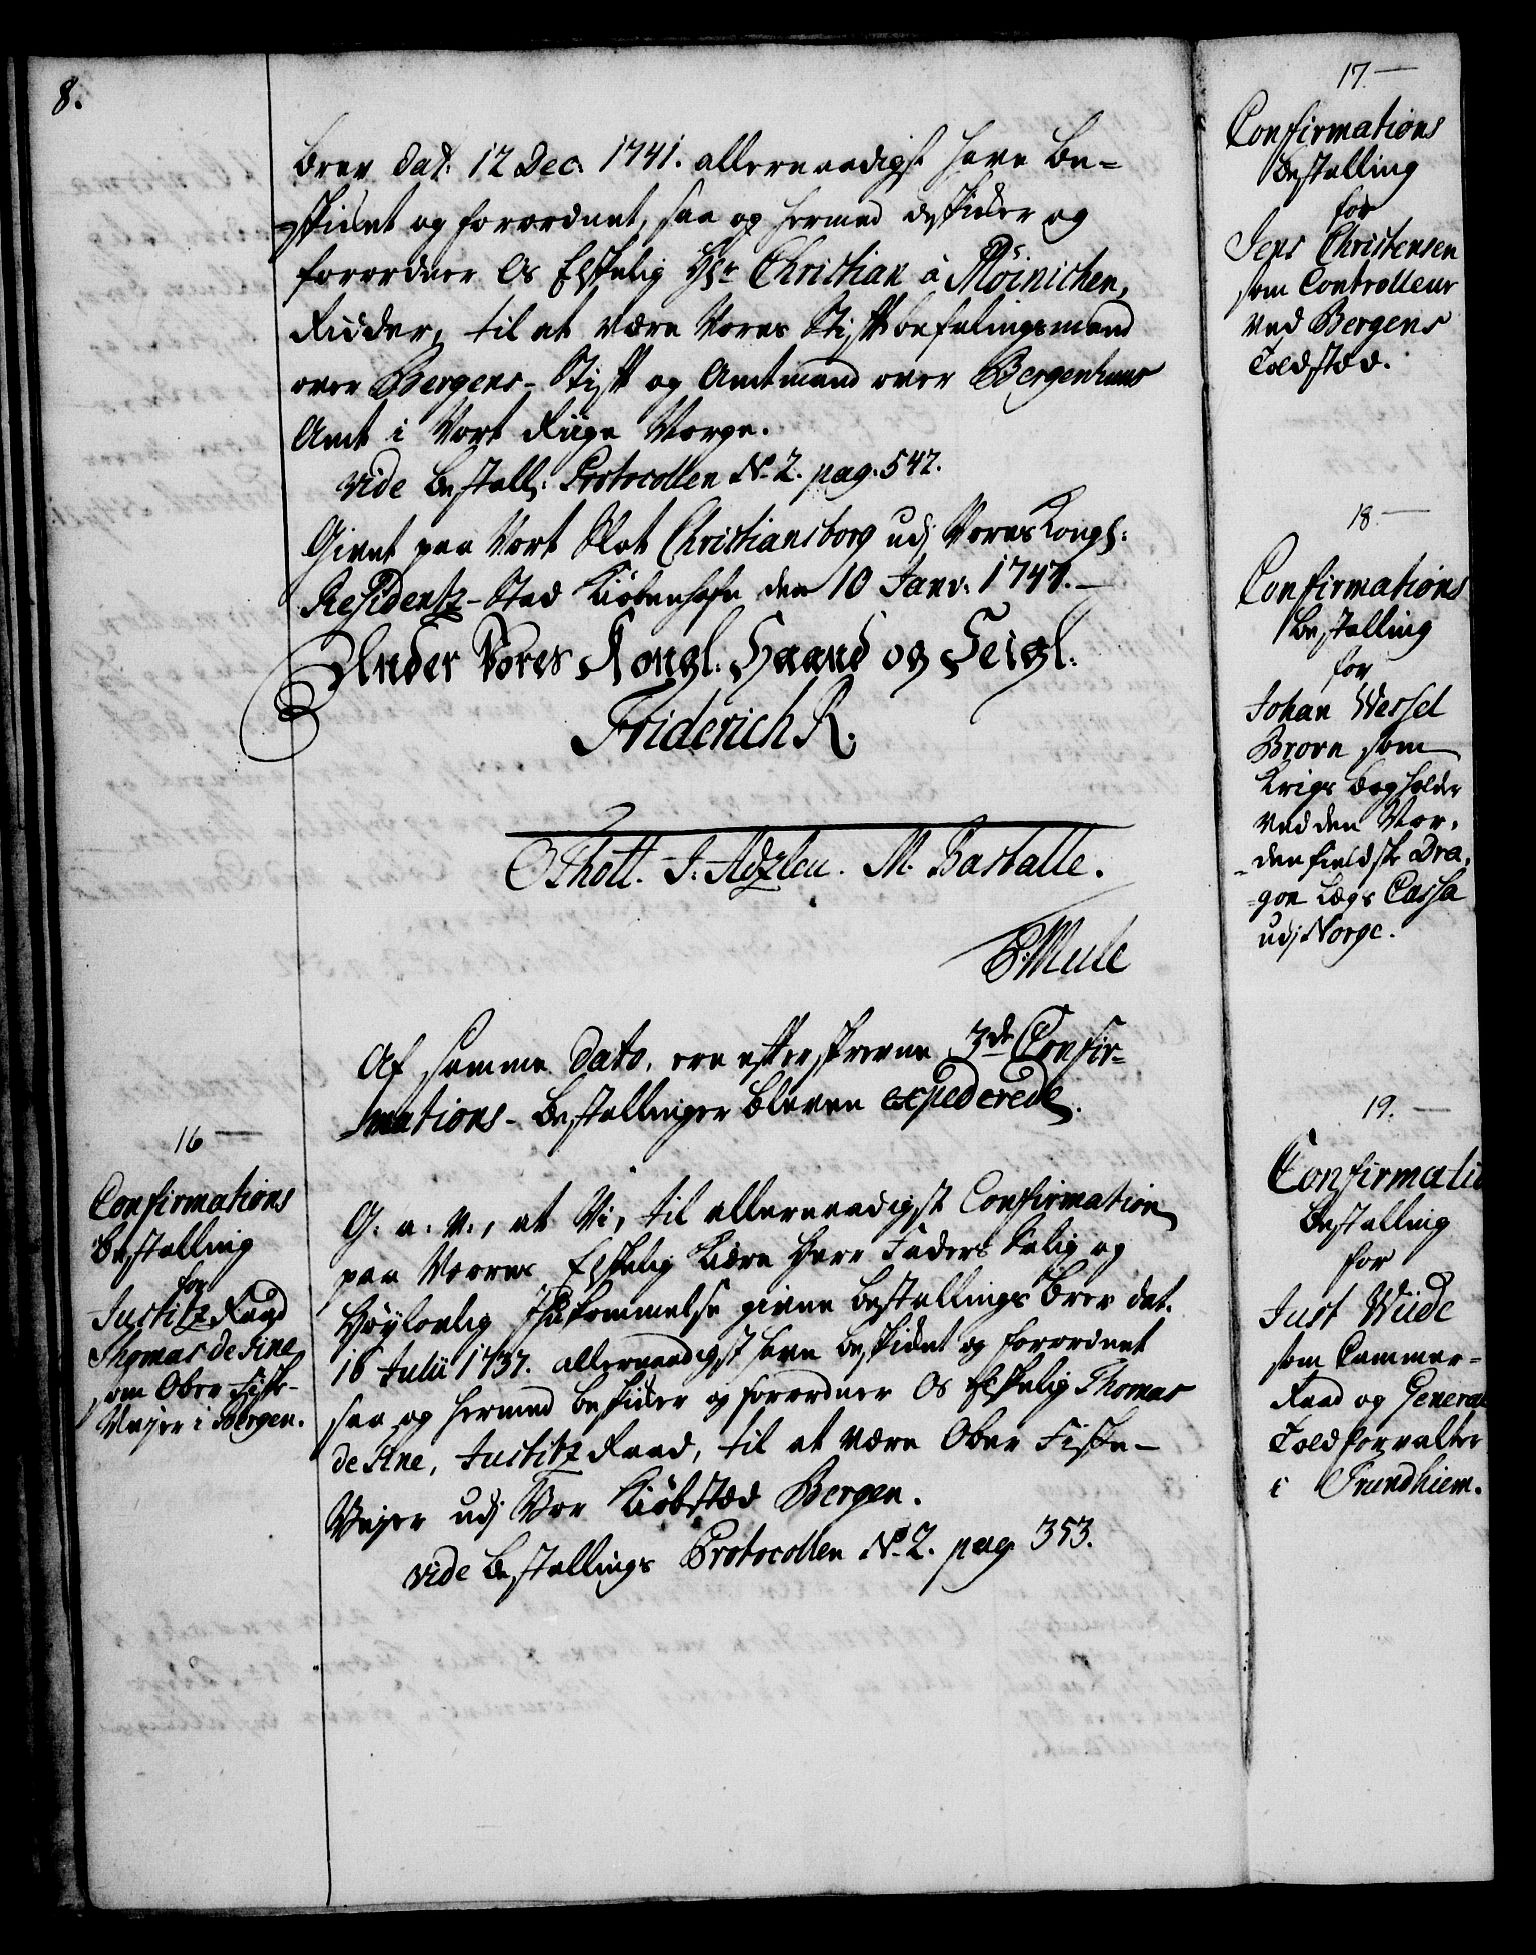 8.
Brev dat. 12 Dec. 1741. allernaadigst have be-
skicket og forordnet, saa og hermed beskicker og
forordner Os Elskelig Hr Christian á Möinichen,
Ridder, til at være Vores Stiftbefalingsmand
over Bergens-Stift og Amtmand over Bergenhuus
Amt i Vort Riige Norge.
vide Bestall: Protocollen No 2. pag. 542.
Givet paa Vort Slot Christiansborg udj Vores Kongl:
Residentz-Stad Kiøbenhafn den 10 Janv: 1747.
Under Vores Kongl. Haand og Seigl.
Friderich R.
O Thott. J. Adzleu. M. Barballe.
P. Mule
Af samme dato, ere efterskrevne 3de Confir-
mations-Bestallinger bleven expederede.
16
Confirmations
Bestalling
for
Justitz Raad
Thomas de Fine
som Ober Fiske-
Vejer i Bergen.
G. a. v., at Vi, til allernaadigst Confirmation
paa Voores Elskelig Kiære Herr Faders Salig og
Høylovlig Ihukommelse givne Bestallings Brev dat.
18 Julii 1737. allernaadigst have beskicket og forordnet
saa og hermed beskicker og forordner Os Elskelig Thomas
de Fine, Justitz Raad, til at være Ober Fiske-
Vejer udj Vor Kiöbstæd Bergen.
vide Bestallings Protocollen No 2. pag 353.
17.
Confirmations
Bestalling
for
Jens Christensen
som Controlleur
ved Bergens
Toldsted.
18.
Confirmations
Bestalling
for
Johan Wessel
Brovn som
Krigs Bogholder
ved den Nor-
denfieldske Dra-
gon Lægs Cassa
udj Norge.
19.
Confirmatio
Bestalling
for
Just Wiide
som Cammer-
Raad og General
Toldforvalter
i Trundhiem.